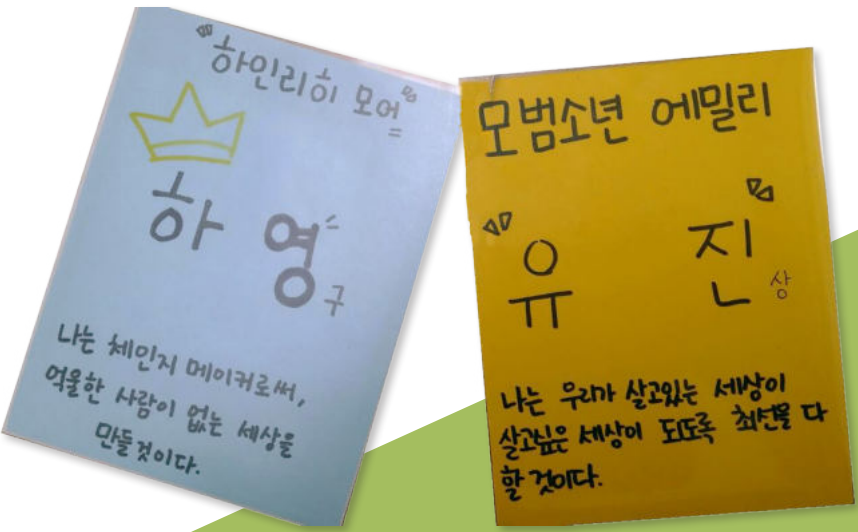 "하인리히 모어"
하영구
나는 체인지 메이커로써,
억울한 사람이 없는 세상을
만들것이다.
모범소년 에밀리
"유진"상
나는 우리가 살고있는 세상이
살고싶은 세상이 되도록 최선을 다
할 것이다.